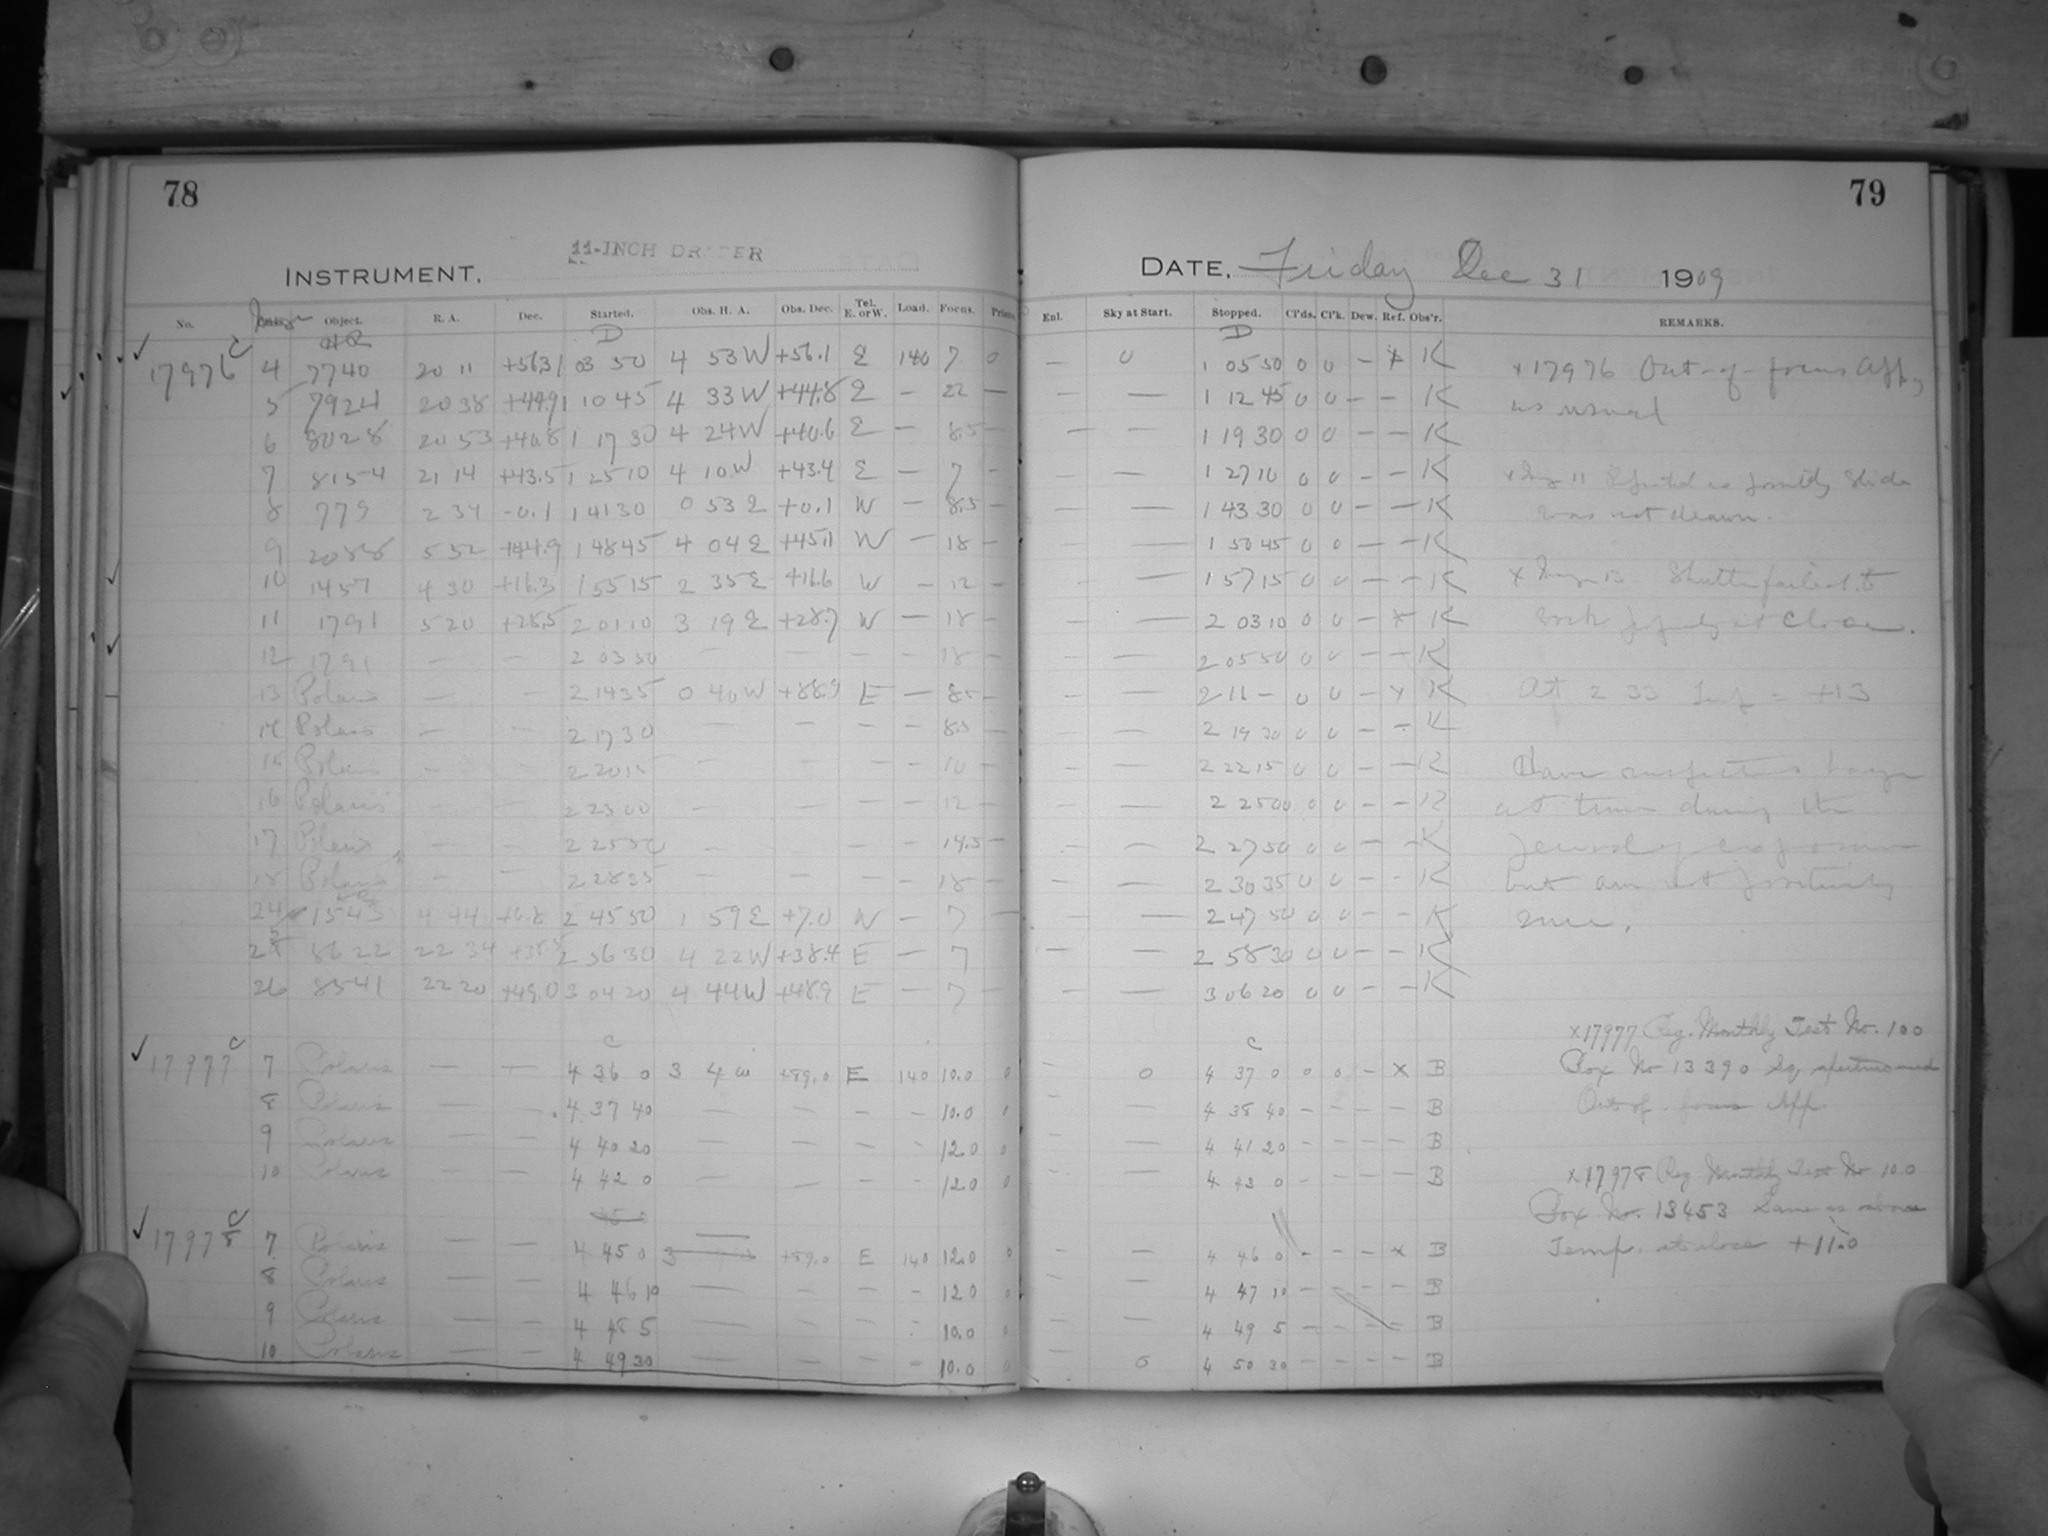 78
11-INCH DRAPER
INSTRUMENT.
No. Image Object. R. A. Dec. Started. Obs. H. A. Obs. Dec. Tel. E. or W. Load. Focus.
HR D
17976 C 4 7740 20 11 +56.3 1 03 50 4 53 W +56.1 E 140 7 0
5 7924 20 38 +44.9 1 10 45 4 33 W +44.8 E — 22 —
6 8028 20 53 +40.8 1 17 30 4 24 W +40.6 E — 8.5 —
7 8154 21 14 +43.5 1 25 10 4 10 W +43.4 E — 7 —
8 779 2 34 -0.1 1 41 30 0 53 E +0.1 W — 8.5 —
9 2088 5 52 +44.9 1 48 45 4 04 E +45.1 W — 18 —
10 1457 4 30 +16.3 1 55 15 2 35 E +16.6 W — 12 —
11 1791 5 20 +28.5 2 01 10 3 19 E +28.7 W — 18 —
12 1791 — — 2 03 50 — — — — 18 —
13 Polaris — — 2 14 35 0 40 W +88.9 E — 8.5 —
14 Polaris — — 2 17 30 — — — — 8.5 —
15 Polaris — — 2 20 15 — — — — 10 —
16 Polaris — — 2 23 00 — — — — 12 —
17 Polaris — — 2 25 50 — — — — 14.5 —
18 Polaris — — 2 28 35 — — — — 18 —
24 1543 4 44 +6.8 2 45 50 1 59 E +7.0 W — 7 —
25 8622 22 34 2 56 30 4 22 W +38.4 E — 7
26 8541 22 20 +49.0 3 04 20 4 44 W +48.9 E — 7 —
C
17977 C 7 Polaris — — 4 36 0 3 4 W +89.0 E 140 10.0 0
8 Polaris — — 4 37 40 — — — — 10.0 0
9 Polaris — — 4 40 20 — — — — 12.0 0
10 Polaris — — 4 42 0 — — — — 12.0 0
17978 C 7 Polaris — — 4 45 0 3 +89.0 E 140 12.0 0
8 Polaris — — 4 46 10 — — — — 12.0 0
9 Polaris — — 4 48 5 — — — — 10.0 0
10 Polaris — — 4 49 30 — — — — 10.0 0
79
DATE, Friday Dec 31 1909
Enl. Sky at Start. Stopped. Cl'ds. Cl'k. Dew. Ref. Obs'r. REMARKS.
D
— 0 1 05 50 0 0 — x K
— — 1 12 45 0 0 — — K
— — 1 19 30 0 0 — — K
— — 1 27 10 0 0 — — K
— — 1 43 30 0 0 — — K
— — 1 50 45 0 0 — — K
— — 1 57 15 0 0 — — K
— — 2 03 10 0 0 — x K
— — 2 05 50 0 0 — — K
— — 2 16 — 0 0 — x K
— — 2 19 30 0 0 — — K
— — 2 22 15 0 0 — — K
— — 2 25 00 0 0 — — K
— — 2 27 50 0 0 — — K
— — 2 30 35 0 0 — — K
— — 2 47 50 0 0 — — K
— — 2 58 30 0 0 — — K
— — 3 06 20 0 0 — — K
C
— 0 4 37 0 0 0 — x B
— — 4 38 40 — — — — B
— — 4 41 20 — — — — B
— — 4 43 0 — — — — B
— — 4 46 0 — — — x B
— — 4 47 10 — — — — B
— — 4 49 5 — — — — B
— 0 4 50 30 — — — — B
x 17976 Out-of-focus App,
as usual
x Img 11 Rejected as slide
was not drawn.
x Img 13 Shutter failed to
work at close.
At 2 33 Temp = +13
Have suspected haze
at times during the
period of exposure
but am not positively
sure.
x17977 Reg. Monthly Test No. 100
Box No 13390 Sq. aperture used
Out of focus App.
x17978 Reg Monthly Test No 100
Box No. 13453 Same as above
Temp. at close +11.0